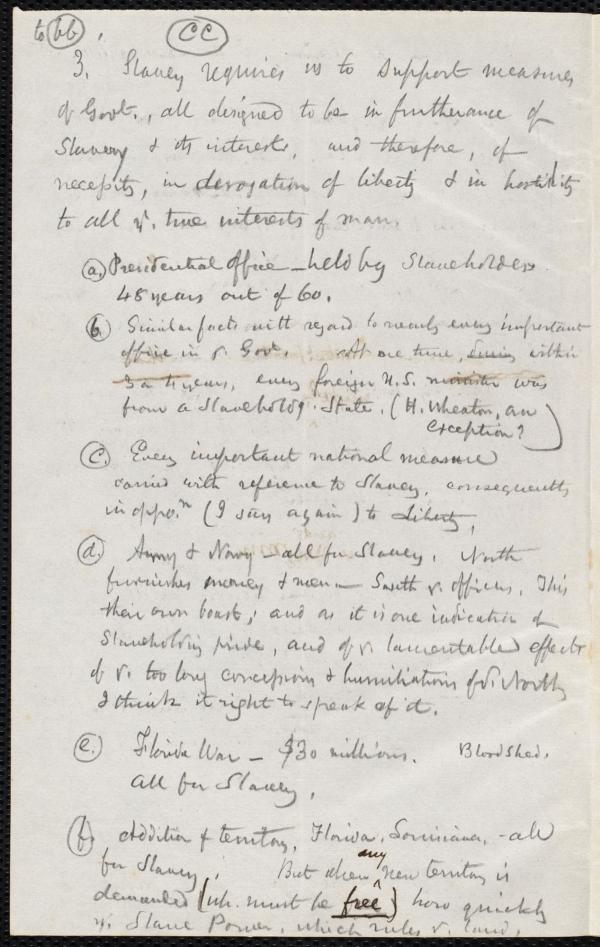 to bb. CC
3. Slavery requires us to support measures
of Govt., all designed to be in furtherance of
Slavery & its interests, and therefore, of
necessity, in derogation of liberty & in hostility
to all ye. true interests of man.
(a.) Presidential office – held by Slaveholders
48 years out of 60.
(b.) Similar facts with regard to nearly every important
office in ye. Govt. At one time, within
3 or 4 years, every foreign U.S. minister was
from a Slaveholdg. State. (H. Wheaton, an
exception?)
(c.) Every important national measure
carried with reference to Slavery, consequently
in oppo.n (I say again) to Liberty.
(d.) Army & Navy – all for Slavery. North
furnishes money & men – South ye. officers. This
their own boast; and as it is one indication of
Slaveholding pride, and of ye. lamentable effects
of ye. too long concessions & humiliations of ye. North,
I think it right to speak of it.
(e.) Florida War – $30 millions. Bloodshed.
All for Slavery.
(f.) Addition of territory, Florida, Louisiana, – all
for Slavery. But when any new territory is
demanded (wh. must be free) how quickly
ye. Slave Power, which rules ye. land,